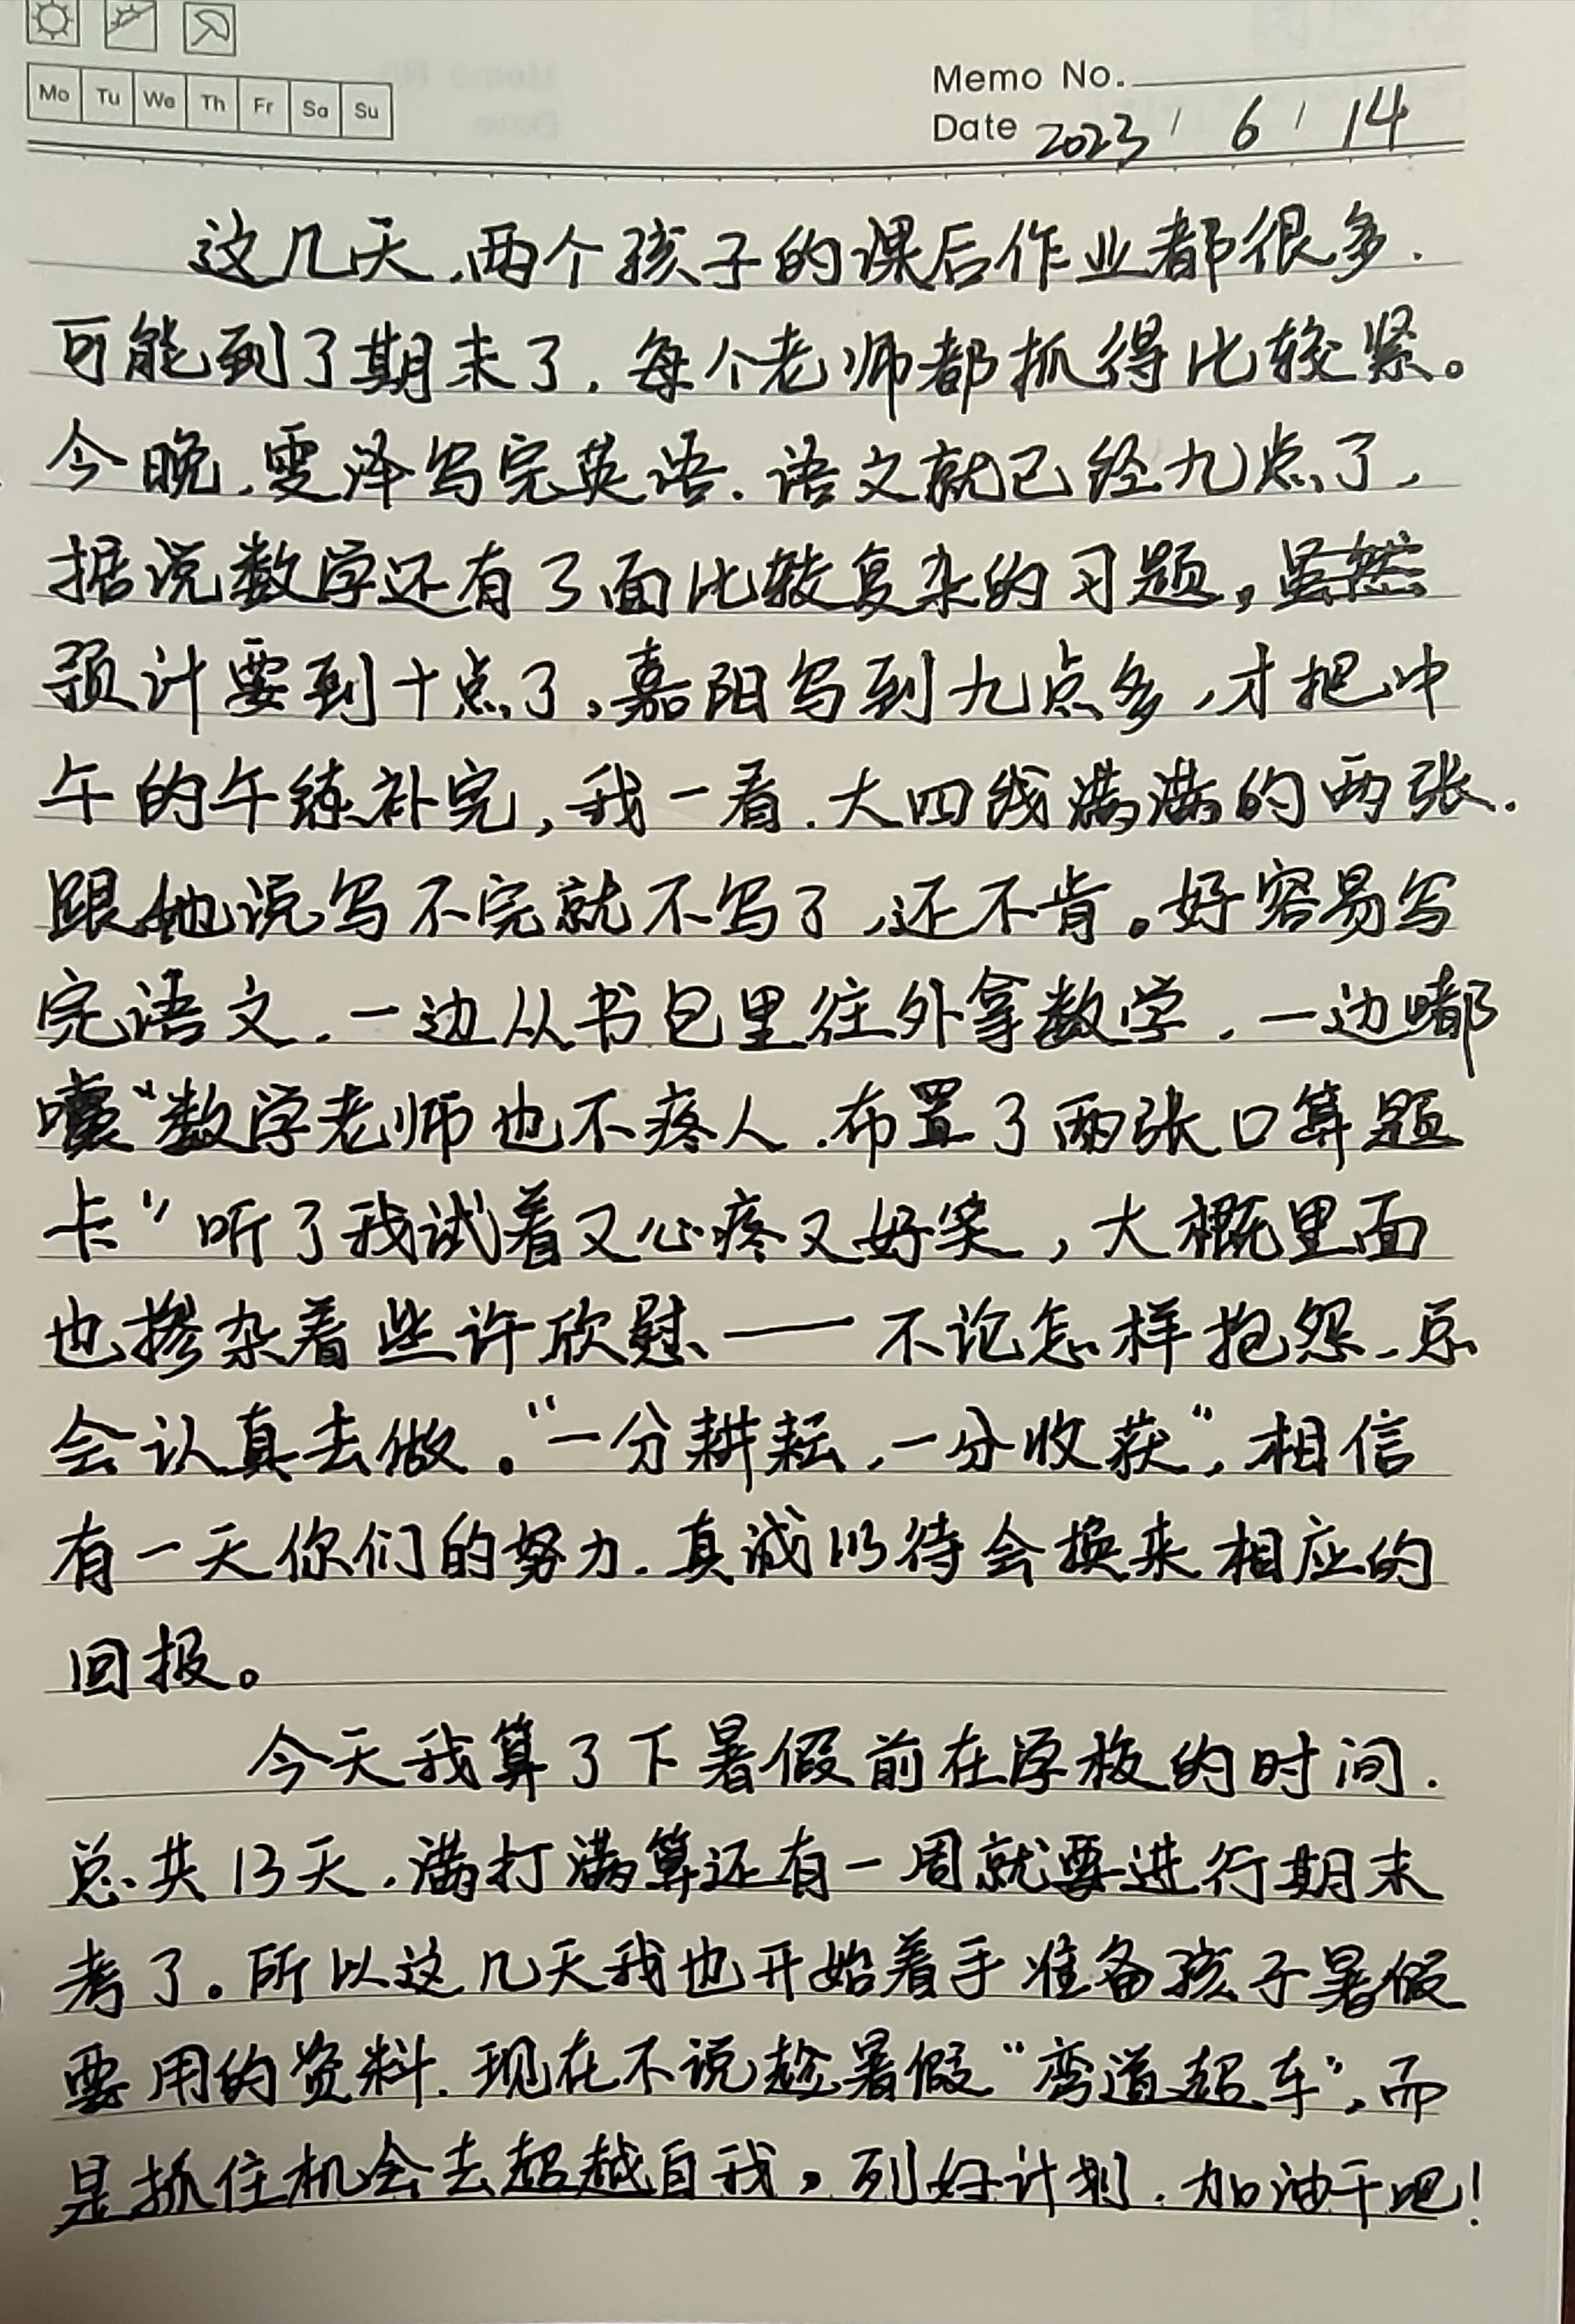 Mo Tu We Th Fr Sa Su
Memo No.
Date 2023 / 6 / 14
这几天,两个孩子的课后作业都很多.
可能到了期末了,每个老师都抓得比较紧。
今晚,雯泽写完英语.语文就已经九点了,
据说数学还有3面比较复杂的习题,
预计要到十点了,嘉阳写到九点多,才把中
午的午练补完,我一看.大四线满满的两张.
跟她说写不完就不写了,还不肯。好容易写
完语文.一边从书包里往外拿数学.一边嘟
囔“数学老师也不疼人.布置了两张口算题
卡”听了我试着又心疼又好笑,大概里面
也掺杂着些许欣慰——不论怎样抱怨、总
会认真去做。“一分耕耘,一分收获”,相信
有一天你们的努力.真诚以待会换来相应的
回报。
今天我算了下暑假前在学校的时间.
总共13天.满打满算还有一周就要进行期末
考了。所以这几天我也开始着手准备孩子暑假
要用的资料.现在不说趁暑假“弯道超车”,而
是抓住机会去超越自我。列好计划.加油干吧!